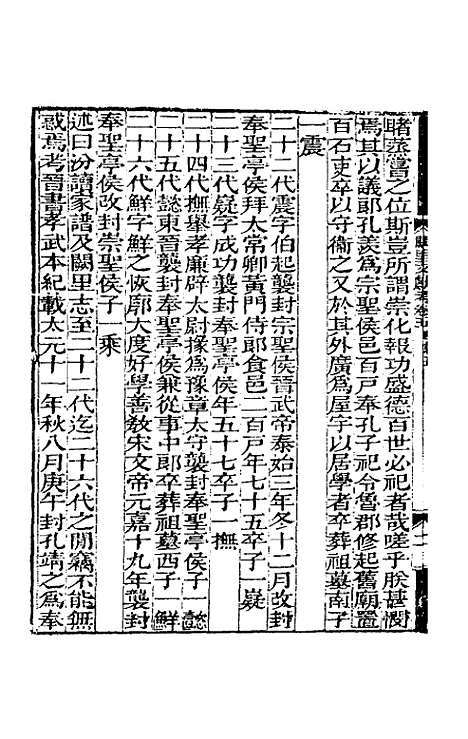 睹蒸嘗之位斯豈所謂崇化報功盛德百世必祀者哉嗟乎朕甚憫
焉其以議郎孔羨爲宗聖侯邑百戸奉孔子祀令魯郡修起舊廟置
百石吏卒以守衛之又於其外廣爲屋宇以居學者卒葬祖墓南子
一震
二十二代震字伯起襲封宗聖侯晉武帝泰始三年冬十二月改封
奉聖亭侯拜太常卿黃門侍郎食邑二百戸年七十五卒子一嶷
二十三代嶷字成功襲封奉聖亭侯年五十七卒子一撫
二十四代撫舉孝廉辟太尉掾爲豫章太守襲封奉聖亭侯子一懿
二十五代懿東晉襲封奉聖亭侯兼從事中郎卒葬祖墓西子一鮮
二十六代鮮字鮮之恢廓大度好學善敎宋文帝元嘉十九年襲封
奉聖亭侯改封崇聖侯子一乘
述曰汾讀家譜及闕里志至二十二代迄二十六代之閒竊不能無
惑焉考晉書孝武本紀載太元十一年秋八月庚午封孔靖之爲奉